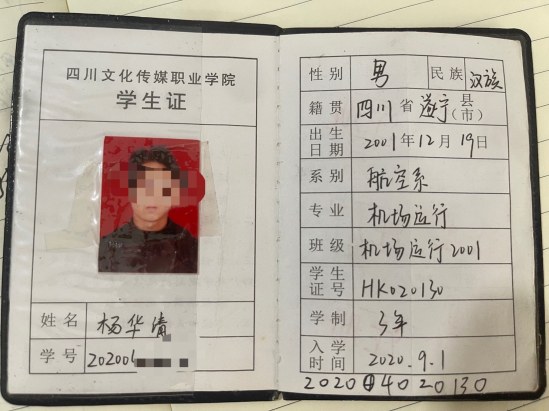 四川文化传媒职业学院
学生证
姓名 杨华清
学号 202006
性别 男 民族 汉族
籍贯 四川 省 遂宁 县(市)
出生日期 2001 年 12 月 19 日
系别 航空系
专业 机场运行
班级 机场运行2001
学生证号 HK020130
学制 3年
入学时间 2020.9.1
20200140 20130